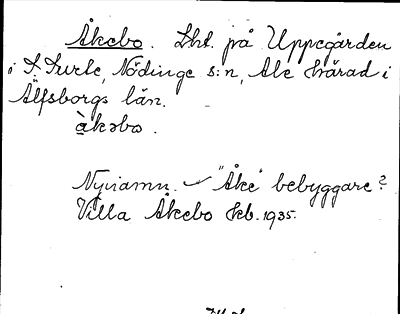 Åkebo. Lht. på Uppegården
i S. Surte, Nödinge s:n, Ale härad i
Älfsborgs län.
àkəbo.
"Åke" bebyggare?
Villa Åkebo Hb. 1935.